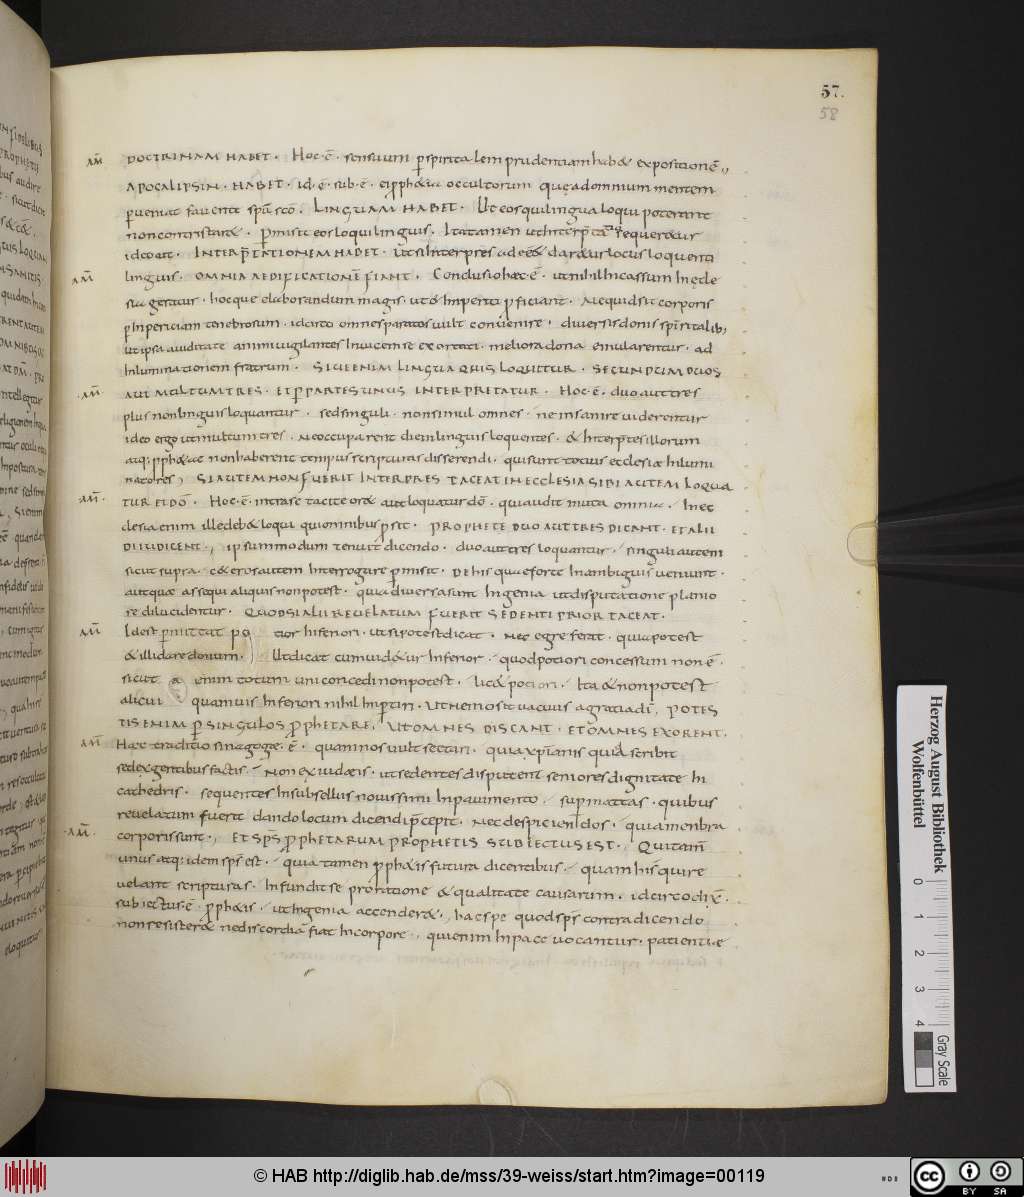 57.
58
am̄ DOCTRINAM HABET · Hoc · ē · sensuum ꝑ spiritalem prudentiam hab& expositionē
APOCALIPSIN · HABET · id · ē · sub · ē · ei ꝓph&ia occultorum quę ad omnium mentem
ꝑueniat favente spū scō · LINGUAM HABET · Ut eos qui lingua loqui poterant
non contristar& · Permisit eos loqui linguis · Ita tamen ut interp̄ta requer&ur
ideo ait · INTERP̄TATIONEM HABET · Ut si interpres adeēt dar&ur locus loquenti
am̄ linguis · OMNIA AEDIFICATIONĒ FIANT · Conclusio haec · ē · ut nihil incassum in ęcle
sia geratur · hocque elaborandum magis · ut & inperiti ꝓficiant · Ne quid sit corporis
ꝑ inperitiam tenebrosum · idcirco omnes paratos vult convenire · diversis donis spiritalib;
ut ipsa aviditate animi vigilantes invicem se exortati · meliora dona emularentur · ad
inluminationem fratrum · SIVE ENIM LINGUA QUIS LOQUITUR · SECUNDUM DUOS
am̄ AUT MULTUM TRES · ET P̄ PARTES UNUS INTERPRITATUR · Hoc · ē · duo aut tres
plus non linguis loquantur · sed singuli · non simul omnes · ne insanire viderentur
ideo ergo ut multum tres · Ne occuparent diem linguis loquentes · & interp̄tes illorum
atq; ꝓph&ae non haberent tempus scripturas disserendi · qui sunt totius ecclesiae inlumi
natores; SI AUTEM NON FUERIT INTERPRES TACEAT IN ECCLESIA SIBI AUTEM LOQUA
am̄ TUR ET DŌ · Hoc · ē · intra se tacite or& aut loquatur dō · qui audit muta omnia · In ec
clesia enim ille deb& loqui qui omnibus ꝓsit · PROPHETE DUO AUT TRES DICANT · ET ALII
DIIUDICENT; ipsum modum tenuit dicendo · duo aut tres loquantur · singuli autem
sicut supra · c&eros autem interrogare ꝑmisit · De his quae forte in ambiguis veniunt ·
aut quae assequi aliquis non potest · quia diversa sunt ingenia ut disputatione planio
re dilucidentur · QUOD SI ALII REVELATUM FUERIT SEDENTI PRIOR TACEAT ·
am̄ Id est ꝑmittat po tior inferiori · ut si potest dicat · Nec egre ferat · quia potest
& illi dare donum · Ut dicat cum vid&ur inferior · quod potiori concessum non ē ·
sicut enim totum uni concedi non potest · lic& potiori · Ita & non potest
alicui quamvis inferiori nihil inꝑtiri · Ut nemo sit vacuus a gratia dī, POTES
TIS ENIM P̄ SINGULOS P̄PHETARE, UT OMNES DISCANT · ET OMNES EXORENT ·
am̄ Haec traditio sinagogę · ē · quam nos vult sectari · quia xp̄ianis quidē scribit
sed ex gentibus factis · Non ex iudaeis · ut sedentes disputent seniores dignitate in
cathedris · sequentes in subselliis novissimi in pavimento sup mattas · quibus
revelatum fuerit dando locum dicendi p̄cepit · Nec despiciendos · quia menbra
am̄ corporis sunt · ET SP̄S P̄PHETARUM PROPHETIS SUBIECTUS EST · Qui tam̄
unus atq; idem sp̄s est · quia tamen ꝓph&is futura dicentibus · quam his qui re
velant scripturas · infundit se pro ratione & qualitate causarum · idcirco dix̄
subiectus · ē · ꝓph&is · ut ingenia accender& · hac spe quod sp̄s contradicendo
non resister& ne discordia fiat in corpore · qui enim in pace vocantur · patientiae
Herzog August Bibliothek
Wolfenbüttel
0 1 2 3 4
Gray Scale
© HAB http://diglib.hab.de/mss/39-weiss/start.htm?image=00119
cc BY SA